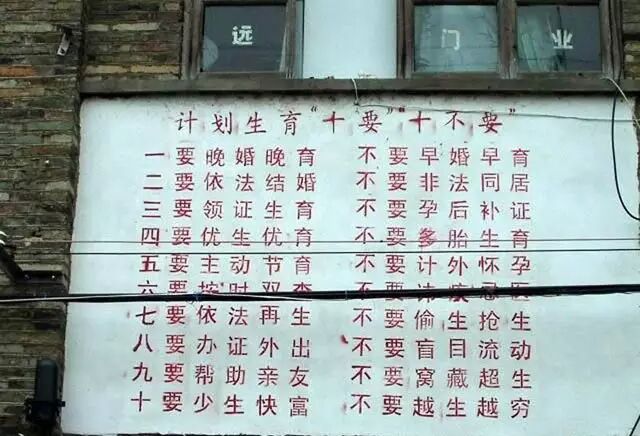 远 门 业
计划生育“十要”“十不要”
一要晚婚晚育 不要早婚早育
二要依法结婚 不要非法同居
三要领证生育 不要孕后补证
四要优生优育 不要多胎生育
五要主动节育 不要计外怀孕
六要按时双查 不要讳疾忌医
七要依法再生 不要偷生抢生
八要办证外出 不要盲目流动
九要帮助亲友 不要窝藏超生
十要少生快富 不要越生越穷